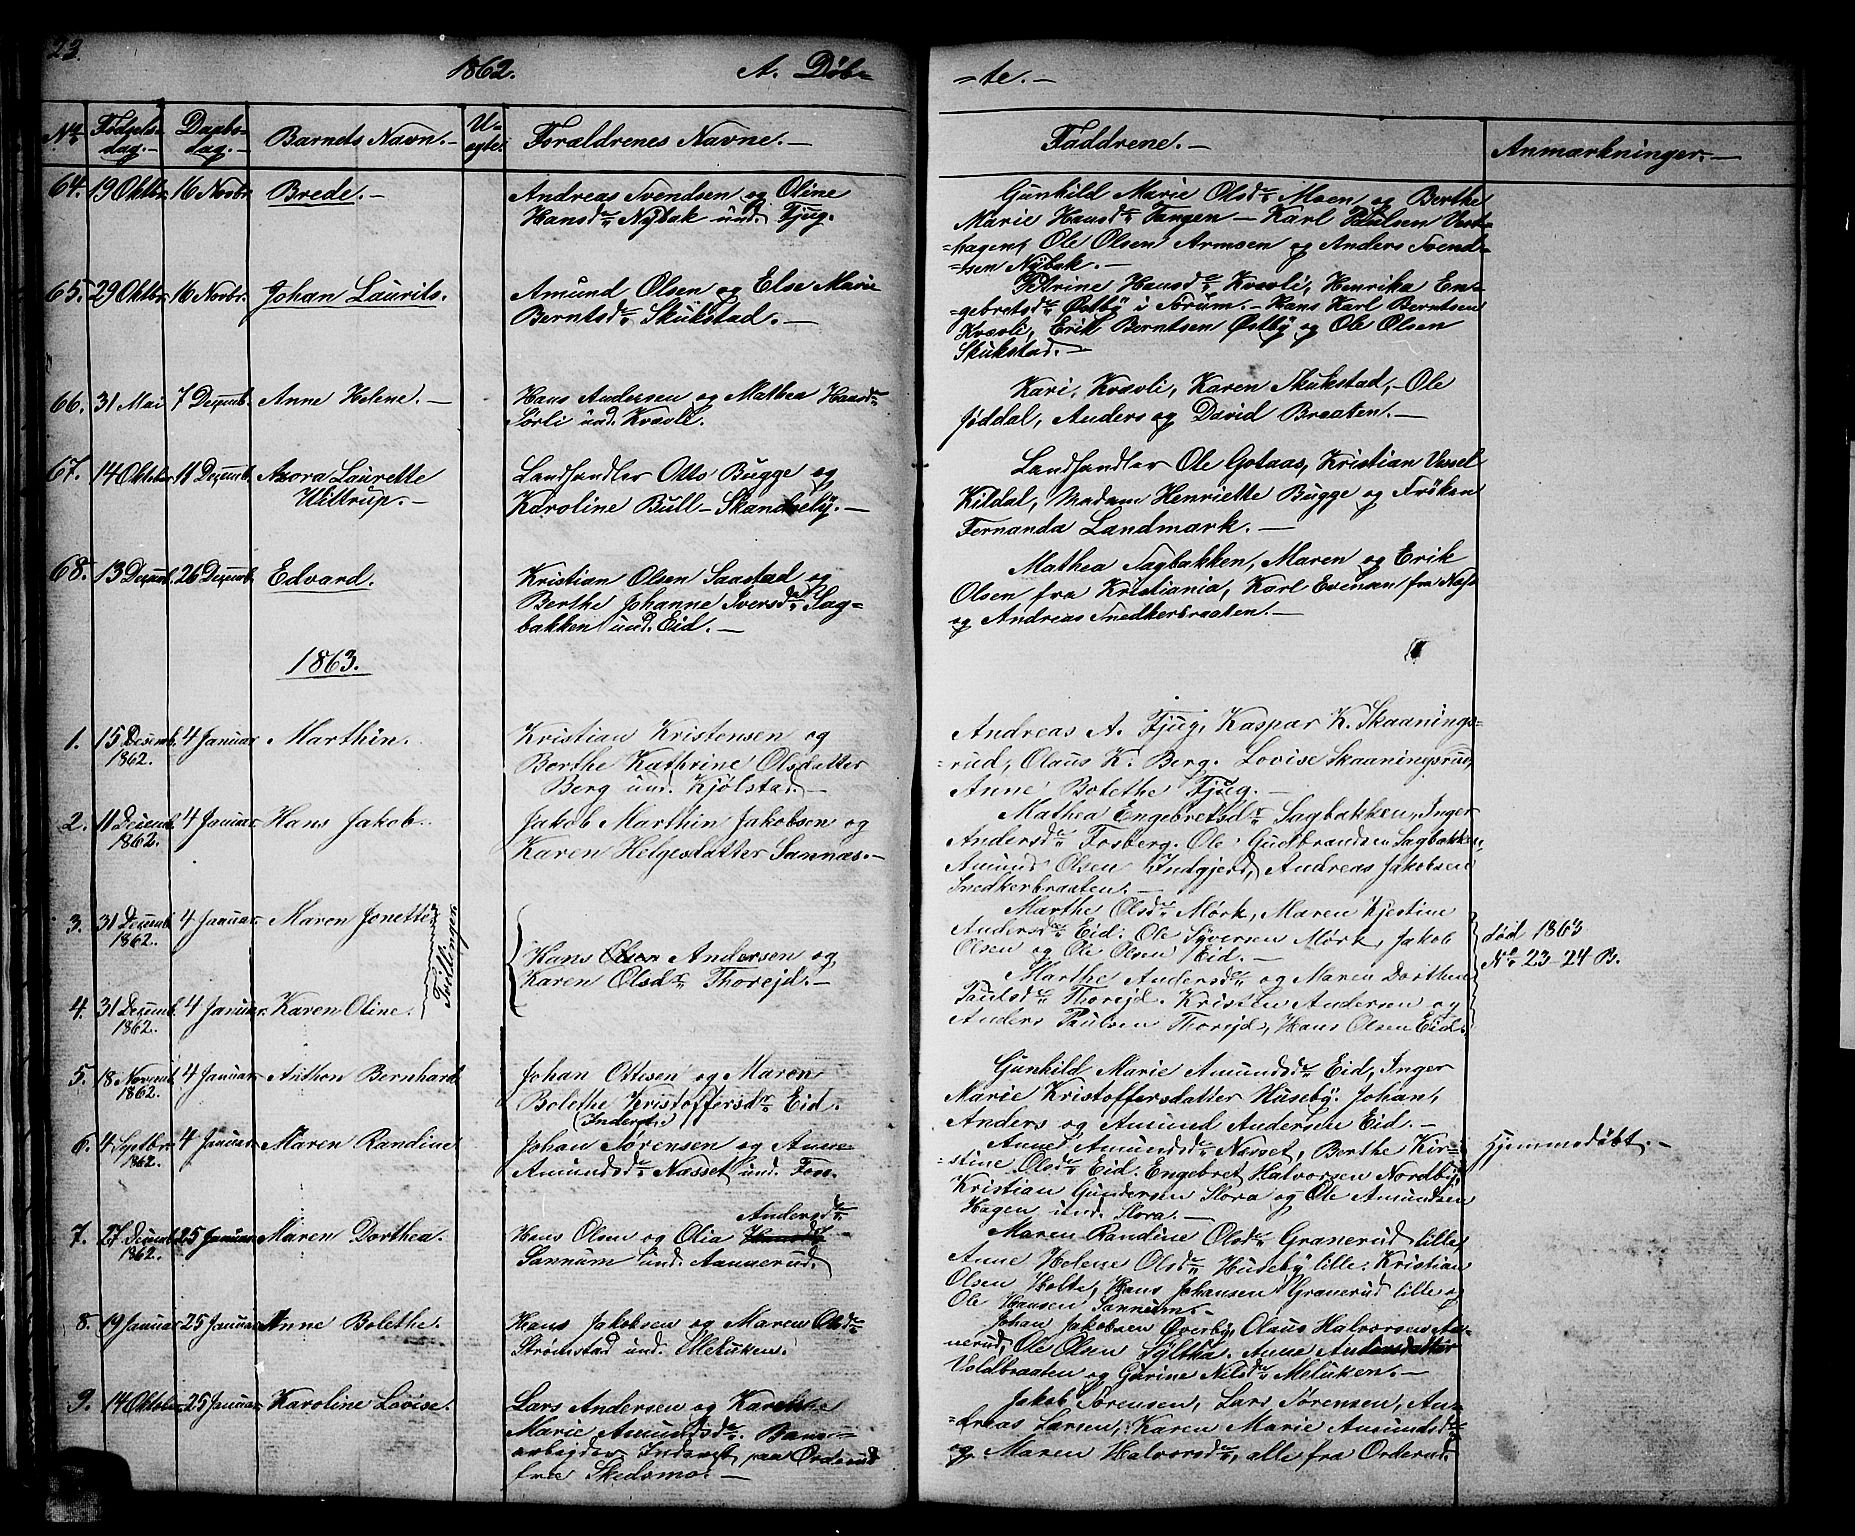 23.
1862. A. Døb=
=te. —
No Fødsels- Daabs- Barnets Navn. — U- Forældrenes Navne. —
dag. — dag. — ægte.
Faddrene. — Anmærkninger. —
64. 19 Oktbr. 16 Novbr. Brede. — Andreas Svendsen og Oline
Hansdr Nybak und. Fjug.
Gunhild Marie Olsdr Moen og Berthe
Marie Hansdr Tangen — Karl Paulsen Vest-
=hagen, Ole Olsen Armoen og Anders Svend-
=sen Nybak. —
65. 29 Oktbr. 16 Novbr. Johan Laurits. Amund Olsen og Else Marie
Berntsdr Skukstad. —
Petrine Hansdr Kvævli, Henrika En=
=gebretsdr Østby i Sørum. — Hans Karl Berntsen
Kvævli, Erik Berntsen Østby og Ole Olsen
Skukstad. —
66. 31 Mai 7 Dezemb. Anne Helene. — Hans Andersen og Mathea Hansdr
Sørli und. Kvævli.
Kari Kvævli, Karen Skukstad, Ole
Jøddal, Anders og David Braaten. —
67. 14 Oktober 11 Dezemb. Azora Laurette Landhandler Otto Bugge og
Wittrup. — Karoline Bull — Skandseby. —
Landhandler Ole Gotaas, Kristian Vessel
Kildal, Madam Henriette Bugge og Frøken
Fernanda Landmark. —
68. 13 Dezemb. 26 Dezemb. Edvard. Kristian Olsen Saastad og
Berthe Johanne Iversdr Sag=
bakken und. Eid. —
Mathea Sagbakken, Maren og Erik
Olsen fra Kristiania, Karl Evensen fra Næs
og Andreas Snedkerbraaten. —
1863.
1. 15 Desemb. 4 Januar Marthin. Kristian Kristensen og
1862. Berthe Kathrine Olsdatter
Berg und. Kjølstad. —
Andreas A. Fjug, Kaspar K. Skaanings=
=rud, Olaus K. Berg. Lovise Skaaningsrud,
Anne Bolethe Fjug. —
2. 11 Desemb. 4 Januar Hans Jakob. Jakob Marthin Jakobsen og
1862. Karen Helgesdatter Sannæs. —
Mathea Engebretsdr Sagbakken, Inger
Andersdr Fosberg. Ole Gudbrandsen Sagbakken,
Amund Olsen Indgjerd, Andreas Jakobsen
Snedkerbraaten. —
3. 31 Desemb. 4 Januar Maren Jonette
1862. Tvillinger.
Hans Olsen Andersen og
Karen Olsdr Thorejd. —
Marthe Olsdr Mørk, Maren Kjestine
Andersdr Eid. Ole Syversen Mørk, Jakob
Olsen og Ole Olsen Eid. —
død 1863
No 23-24 B.
4. 31 Desemb. 4 Januar. Karen Oline.
1862.
Marthe Andersdr og Maren Dorthea
Paulsdr Thorejd. Kristen Andersen og
Anders Paulsen Thorejd, Hans Olsen Eid.
5. 18 Novemb. 4 Januar Anthon Bernhard Johan Ottesen og Maren
1862. Bolethe Kristoffersdr Eid.
(Inderst.)
Gunhild Marie Amundsdr Eid, Inger
Marie Kristoffersdatter Huseby. Johan,
Anders og Amund Andersen Eid. —
6. 4 Septbr. 4 Januar Maren Randine Johan Sørensen og Anne
1862. Amundsdr Næsset und. Foss.
Anne Amundsdr Næsset, Berthe Kir=
=stine Olsdr Eid. Engebret Halvorsen Nordby,
Kristian Gundersen Slora og Ole Amundsen
Hagen und. Slora. —
Hjemmedøbt. —
7. 27 Desemb. 25 Januar Maren Dorthea. Hans Olsen og Olia Hansdr Andersdr
1862. Sannum und. Aannerud.
Maren Randine Olsdr Granerud lille,
Anne Helene Olsdr Huseby lille. Kristian
Olsen Holte, Hans Johansen Granerud lille og
Ole Hansen Sannum. —
8. 19 Januar 25 Januar Anne Bolethe. Hans Jakobsen og Maren Olsdr
Strømstad und. Mleluken.
Johan Jakobsen Øverby, Olaus Halvorsen An=
nerud, Ole Olsen Syltka. Anne Andersdatter
Voldbraaten og Gurine Nilsdr Meluken. —
9. 14 Oktober 25 Januar Karoline Lovise. Lars Andersen og Karen
Marie Amundsdr. Bane=
=arbejder Inderst paa Orderud
fra Skedsmo. —
Jakob Sørensen, Lars Sørensen, An-
=dreas Larsen, Karen Marie Amundsdr
og Maren Halvorsdr, alle fra Orderud.